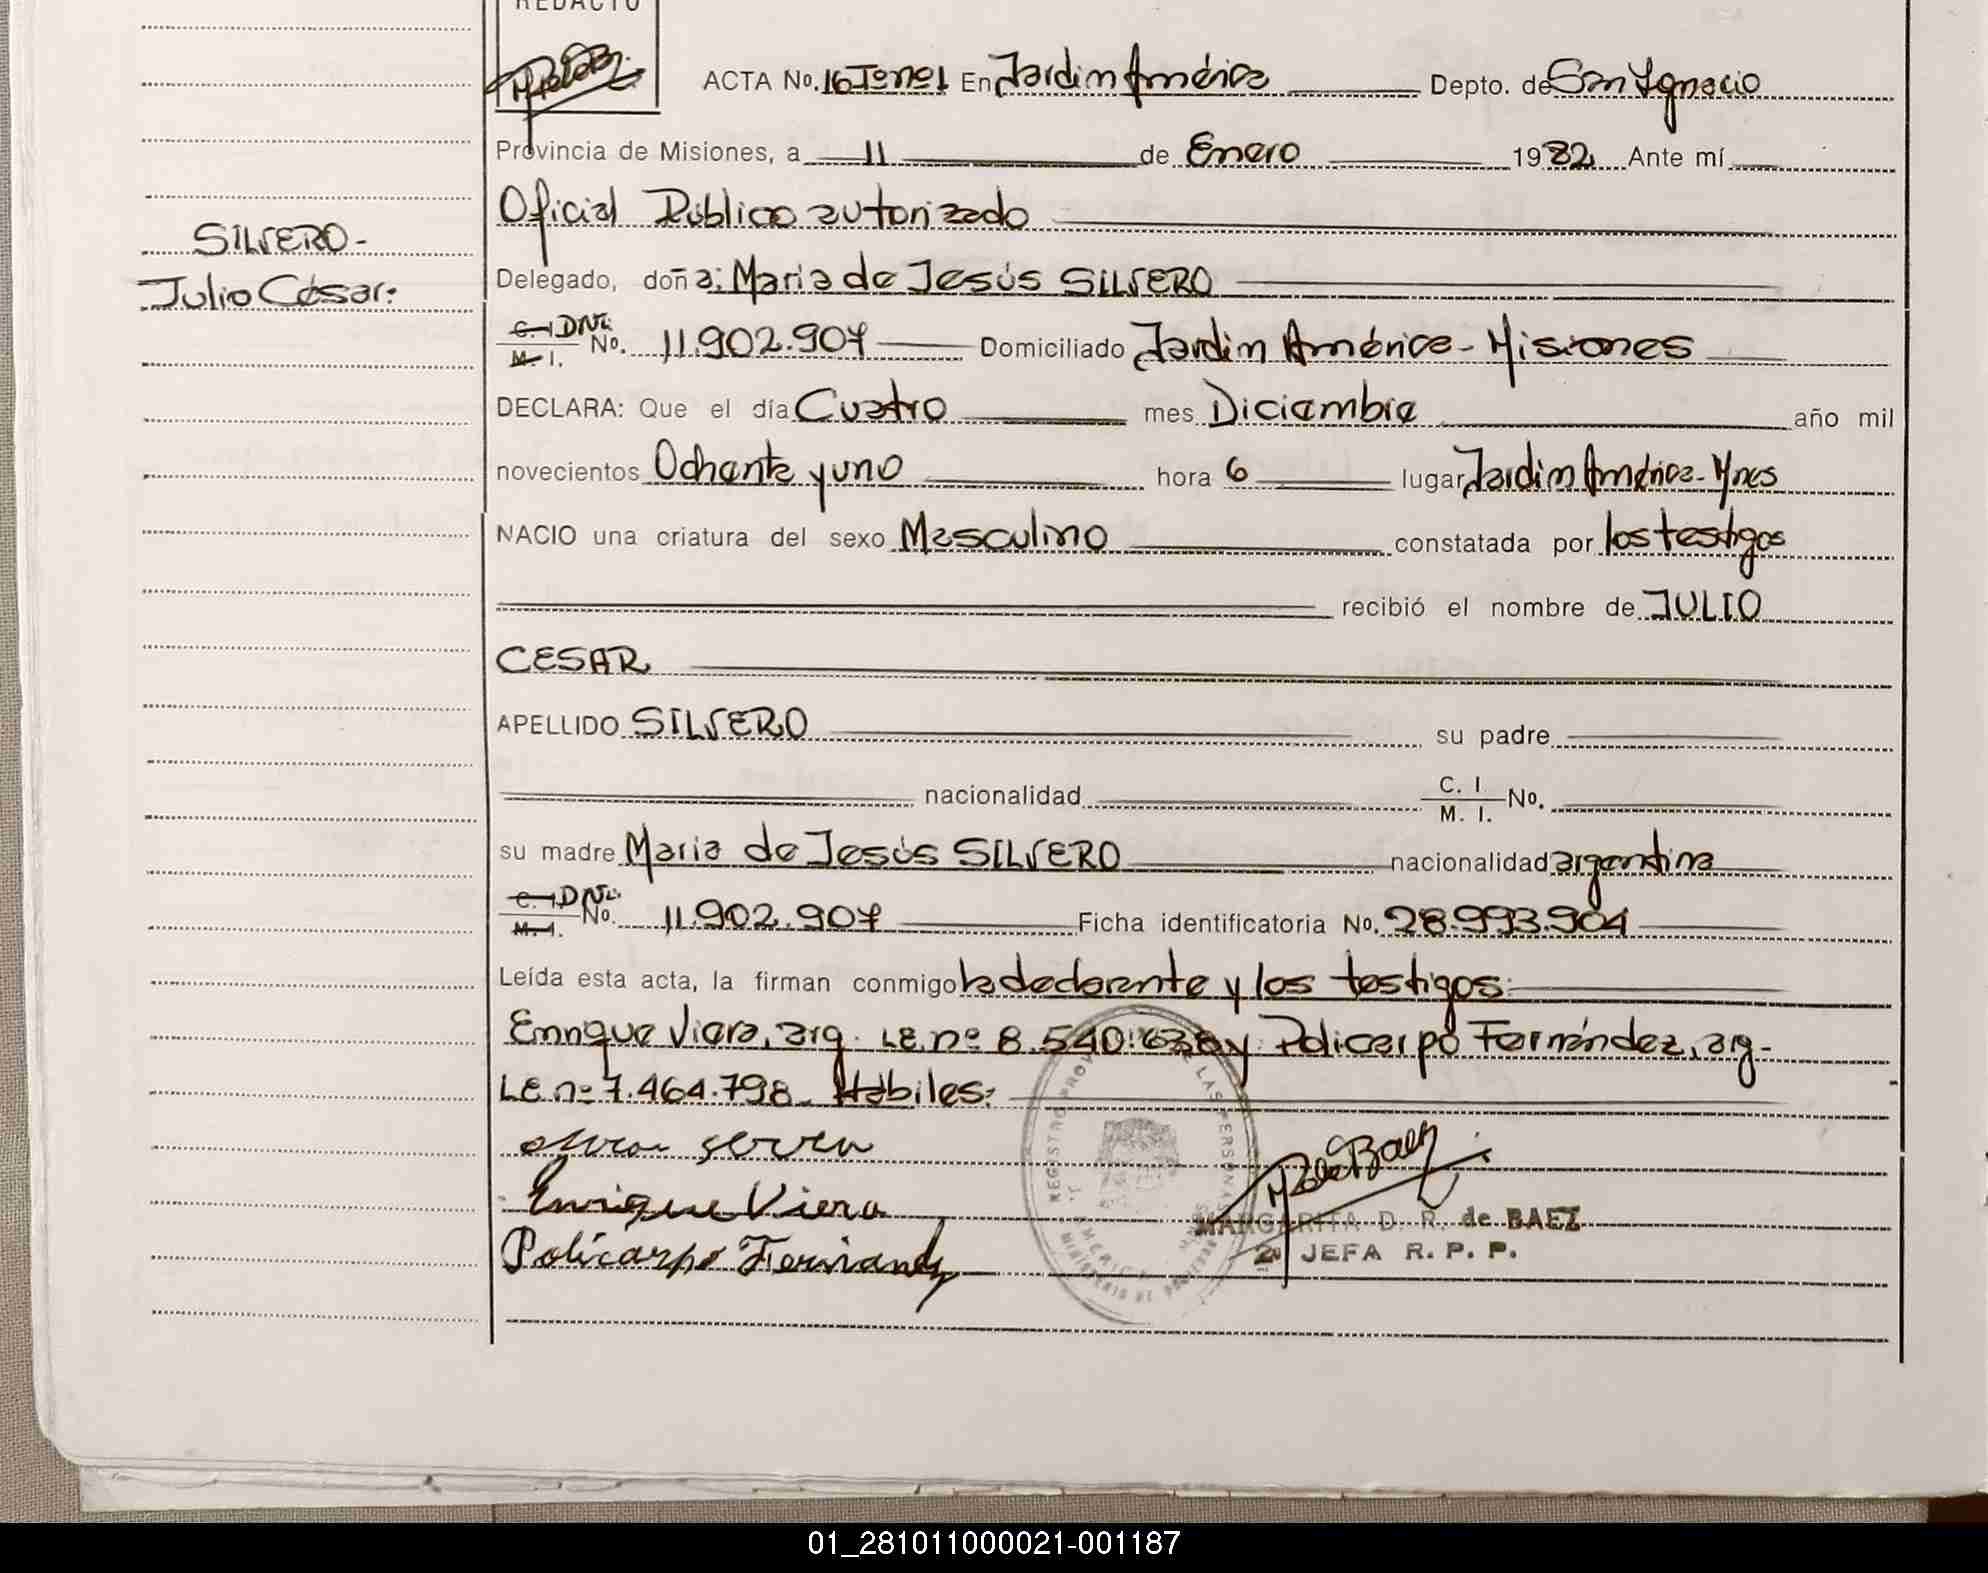 REDACTO
ACTA No. 16 Tº nº 1 En Jardin América Depto. de San Ignacio
Provincia de Misiones, a 11 de Enero 1982 Ante mí
Oficial Público autorizado
SILVERO-
Julio César:
Delegado, doña: Maria de Jesús SILVERO
C. I. DNI. M. I. No. 11.902.907 Domiciliado Jardin América - Misiones
DECLARA: Que el día Cuatro mes Diciembre año mil
novecientos Ochenta y uno hora 6 lugar Jardin América - Mnes
NACIO una criatura del sexo Masculino constatada por los testigos
recibió el nombre de JULIO
CESAR
APELLIDO SILVERO su padre
nacionalidad C. I M. I. No.
su madre Maria de Jesús SILVERO nacionalidad argentina
C. I. DNI. M. I. No. 11.902.907 Ficha identificatoria No. 28.993.904
Leída esta acta, la firman conmigo la declarante y los testigos:
Enrique Viera, arg. LE. nº 8.540.638 y Policarpo Fernández, arg-
LE nº 7.464.798. Hábiles:
Enrique Viera
Policarpo Fernandz
MARGARITA D. R. de BAEZ
2a JEFA R. P. P.
01_281011000021-001187